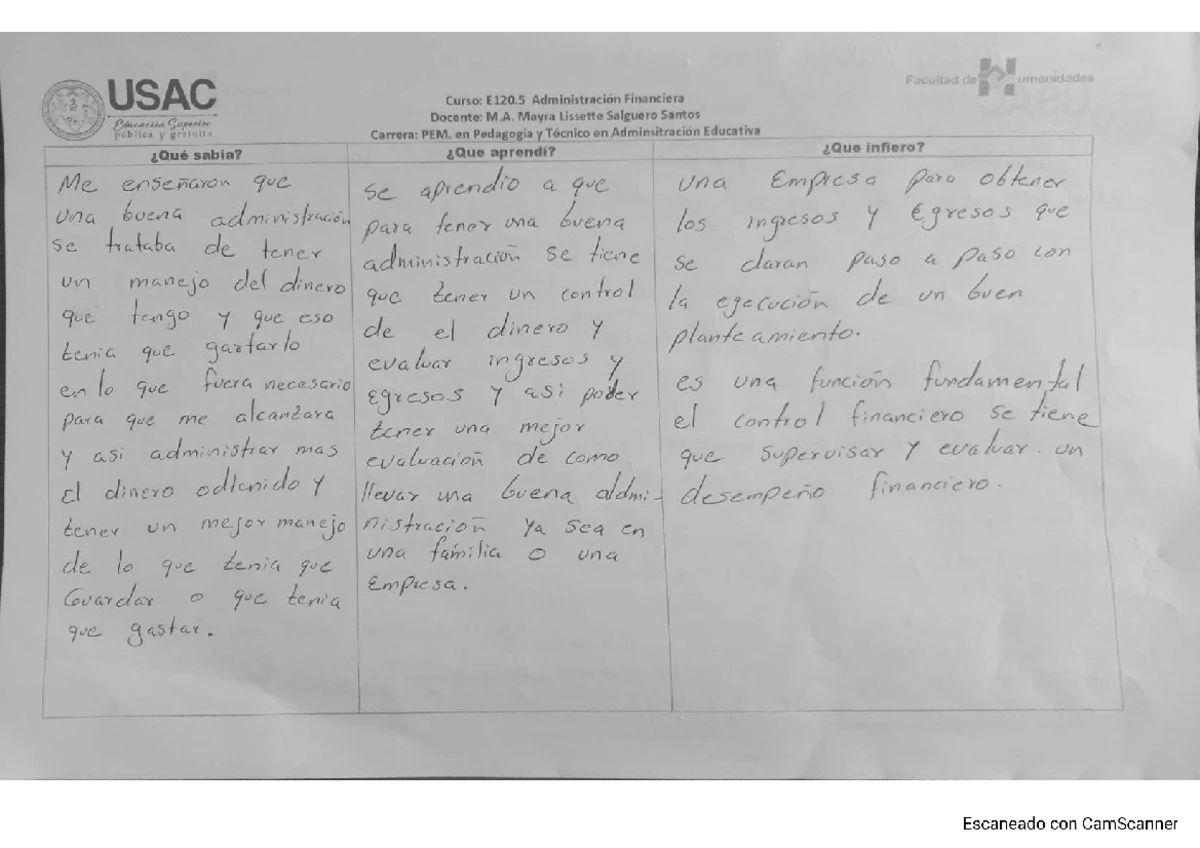 USAC
Educación Superior
pública y gratuita
Facultad de Humanidades
Curso: E120.5 Administración Financiera
Docente: M.A. Mayra Lissette Salguero Santos
Carrera: PEM. en Pedagogía y Técnico en Adminsitración Educativa
¿Qué sabía?
Me enseñaron que
una buena administración
se trataba de tener
un manejo del dinero
que tengo y que eso
tenia que gartarlo
en lo que fuera necesario
para que me alcanzara
y asi administrar mas
El dinero odtenido y
tener un mejor manejo
de lo que tenia que
Guardar o que tenia
que gastar.
¿Que aprendí?
se aprendio a que
para tener una buena
administración se tiene
que tener un control
de el dinero y
evaluar ingresos y
Egresos y asi poder
tener una mejor
evaluación de como
llevar una buena admi-
nistración ya sea en
una familia o una
Empresa.
¿Que infiero?
una Empresa para obtener
los ingresos y Egresos que
se daran paso a paso con
la egecución de un buen
planteamiento.
es una función fundamental
el control financiero se tiene
que supervisar y evaluar. un
desempeño financiero.
Escaneado con CamScanner